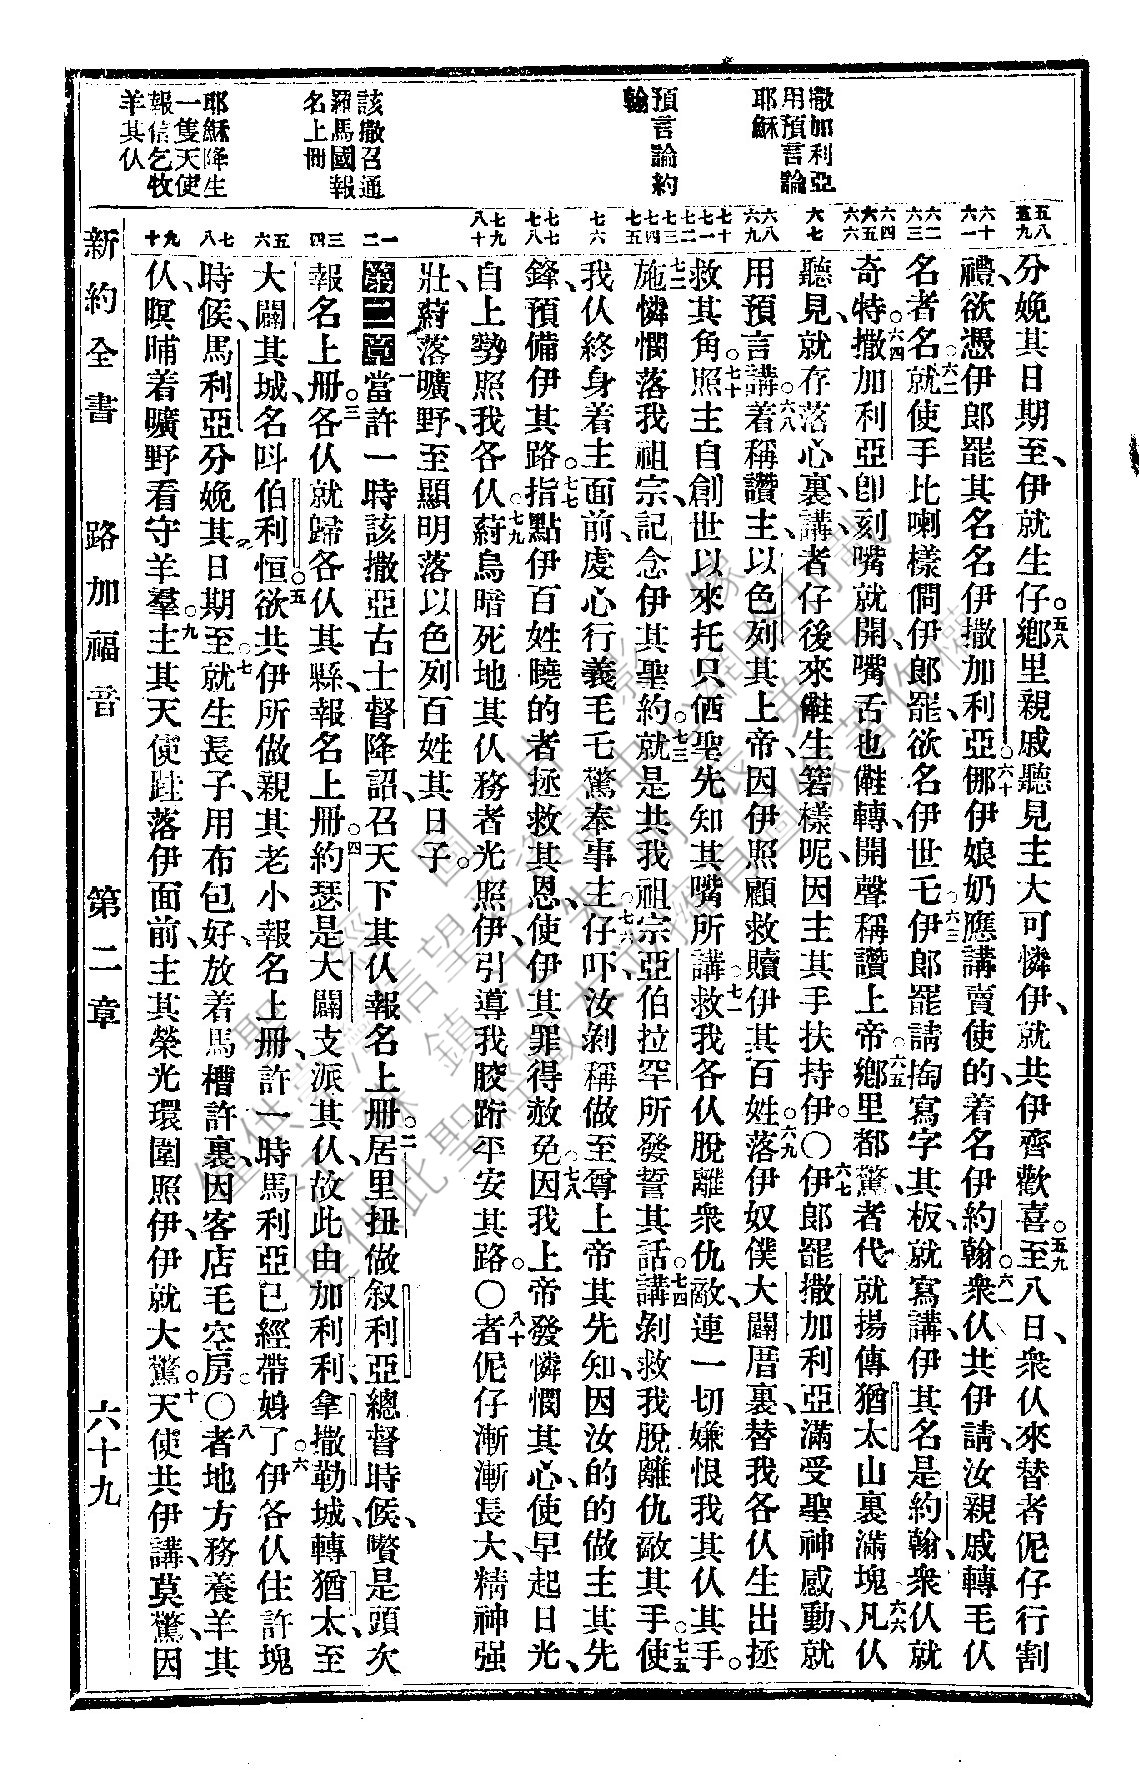 撒加利亞
用預言論
耶穌
預言論約
翰
該撒召通
羅馬國報
名上冊
耶穌降生
一隻天使
報信乞牧
羊其仈
分娩其日期至、伊就生仔。五八鄉里親戚聽見主大可憐伊、就共伊齊歡喜。五九至八日、衆仈來替者伲仔行割
禮、欲憑伊郎罷其名名伊撒加利亞。六十挪伊娘奶應講、賣使的、着名伊約翰。六一衆仈共伊請、汝親戚轉毛仈
名者名。六二就使手比喇樣、問伊郎罷、欲名伊世乇。六三伊郎罷請掏寫字其板、就寫講、伊其名是約翰、衆仈就
奇特。六四撒加利亞卽刻嘴就開、嘴舌也會轉、開聲稱讚上帝。六五鄉里都驚、者代就揚傳猶太山裏滿塊。六六凡仈
聽見、就存落心裏、講、者仔後來會生窘樣呢、因主其手扶持伊〇六七伊郎罷撒加利亞、滿受聖神感動、就
用預言講、六八着稱讚主、以色列其上帝、因伊照顧救贖伊其百姓。六九落伊奴僕大闢厝裏、替我各仈生出拯
救其角。七十照主自創世以來、托只仫聖先知其嘴所講、七一救我各仈脫離衆仇敵、連一切嫌恨我其仈其手。
七二施憐憫落我祖宗、記念伊其聖約。七三就是共我祖宗亞伯拉罕所發誓其話。七四講剝救我脫離仇敵其手。七五使
我仈終身着主面前、虔心行義、毛乇驚奉事主。七六仔吓、汝剝稱做至尊上帝其先知、因汝的的做主其先
鋒、預備伊其路。七七指點伊百姓曉的者拯救其恩、使伊其罪得赦免。七八因我上帝發憐憫其心、使早起日光、
自上勢照我各仈。七九蔚烏暗死地其仈務者光照伊、引導我骹跡平安其路。〇八十者伲仔漸漸長大、精神强
壯、蔚落曠野、至顯明落以色列百姓其日子。
第二章一當許一時、該撒亞古士督降詔召天下其仈報名上冊。二居里扭做叙利亞總督時候、嚽是頭次
報名上冊。三各仈就歸各仈其縣、報名上冊。四約瑟是大闢支派其仈、故此由加利利拿撒勒城轉猶太、至
大闢其城、名叫伯利恒。五欲共伊所做親其老小、報名上冊、許一時馬利亞已經帶娠了。六伊各仈住許塊
時候、馬利亞分娩其日期至。七就生長子、用布包好、放着馬槽許裏、因客店毛空房。〇八者地方務養羊其
仈、暝晡着曠野看守羊羣。九主其天使䟓落伊面前、主其榮光環圍照伊、伊就大驚。十天使共伊講、莫驚、因
新約全書　路加福音　第二章　六十九